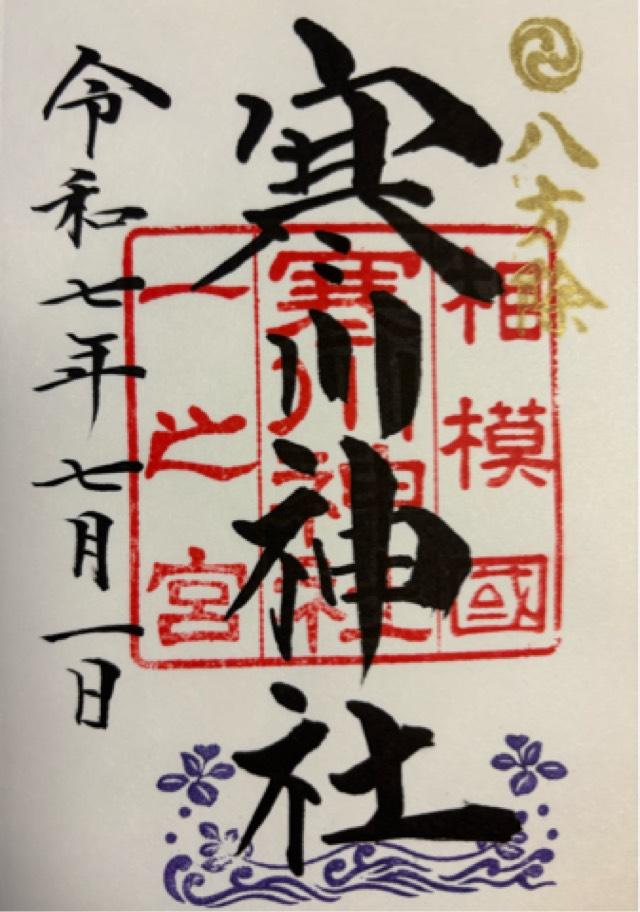 八方除
相模國
寒川神社
一之宮
寒川神社
令和七年七月一日